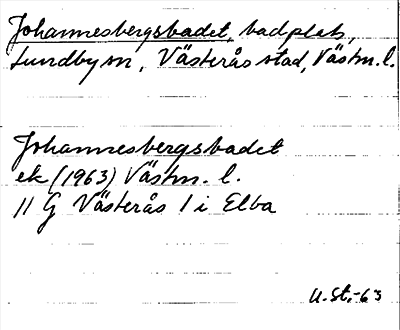 Johannesbergsbadet, badplats,
Lundby sn, Västerås stad, Västm. l.
Johannesbergsbadet
ek (1963) Västm. l.
11 G Västerås 1 i Elba
U. St. -63